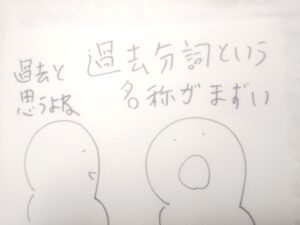 過去分詞という
名称がまずい
過去と
思うよな